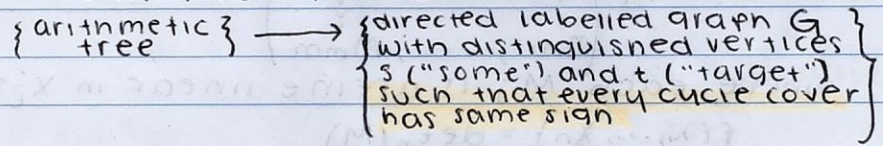 { arithmetic tree } → { directed labelled graph G
with distinguished vertices
s ("some") and t ("target")
such that every cycle cover
has same sign }